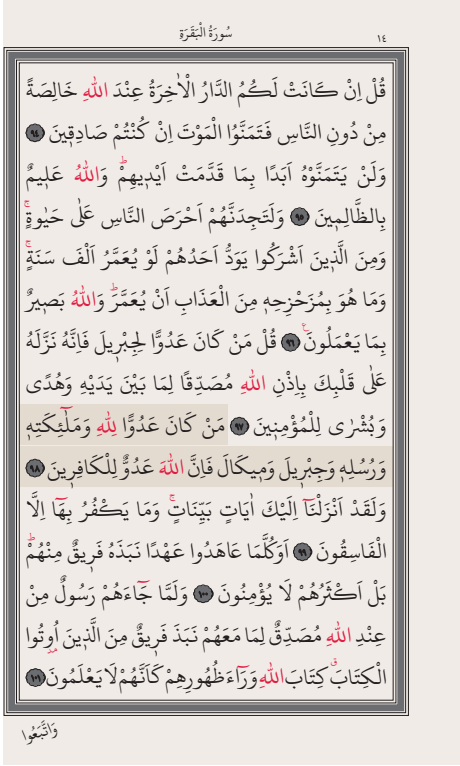 سُورَةُ الْبَقَرَةِ
١٤
قُلْ اِنْ كَانَتْ لَكُمُ الدَّارُ الْاٰخِرَةُ عِنْدَ اللّٰهِ خَالِصَةً
مِنْ دُونِ النَّاسِ فَتَمَنَّوُا الْمَوْتَ اِنْ كُنْتُمْ صَادِق۪ينَ ﴿٩٤﴾
وَلَنْ يَتَمَنَّوْهُ اَبَدًا بِمَا قَدَّمَتْ اَيْد۪يهِمْۜ وَاللّٰهُ عَل۪يمٌ
بِالظَّالِم۪ينَ ﴿٩٥﴾ وَلَتَجِدَنَّهُمْ اَحْرَصَ النَّاسِ عَلٰى حَيٰوةٍۚ
وَمِنَ الَّذ۪ينَ اَشْرَكُوا يَوَدُّ اَحَدُهُمْ لَوْ يُعَمَّرُ اَلْفَ سَنَةٍۚ
وَمَا هُوَ بِمُزَحْزِحِه۪ مِنَ الْعَذَابِ اَنْ يُعَمَّرَۜ وَاللّٰهُ بَص۪يرٌ
بِمَا يَعْمَلُونَ۟ ﴿٩٦﴾ قُلْ مَنْ كَانَ عَدُوًّا لِجِبْر۪يلَ فَاِنَّهُ نَزَّلَهُ
عَلٰى قَلْبِكَ بِاِذْنِ اللّٰهِ مُصَدِّقًا لِمَا بَيْنَ يَدَيْهِ وَهُدًى
وَبُشْرٰى لِلْمُؤْمِن۪ينَ ﴿٩٧﴾ مَنْ كَانَ عَدُوًّا لِلّٰهِ وَمَلٰٓئِكَتِه۪
وَرُسُلِه۪ وَجِبْر۪يلَ وَم۪يكَالَ فَاِنَّ اللّٰهَ عَدُوٌّ لِلْكَافِر۪ينَ ﴿٩٨﴾
وَلَقَدْ اَنْزَلْنَٓا اِلَيْكَ اٰيَاتٍ بَيِّنَاتٍۚ وَمَا يَكْفُرُ بِهَٓا اِلَّا
الْفَاسِقُونَ ﴿٩٩﴾ اَوَكُلَّمَا عَاهَدُوا عَهْدًا نَبَذَهُ فَر۪يقٌ مِنْهُمْۜ
بَلْ اَكْثَرُهُمْ لَا يُؤْمِنُونَ ﴿١٠٠﴾ وَلَمَّا جَٓاءَهُمْ رَسُولٌ مِنْ
عِنْدِ اللّٰهِ مُصَدِّقٌ لِمَا مَعَهُمْ نَبَذَ فَر۪يقٌ مِنَ الَّذ۪ينَ اُو۫تُوا
الْكِتَابَۗ كِتَابَ اللّٰهِ وَرَٓاءَ ظُهُورِهِمْ كَاَنَّهُمْ لَا يَعْلَمُونَ ﴿١٠١﴾
وَاتَّبَعُوا